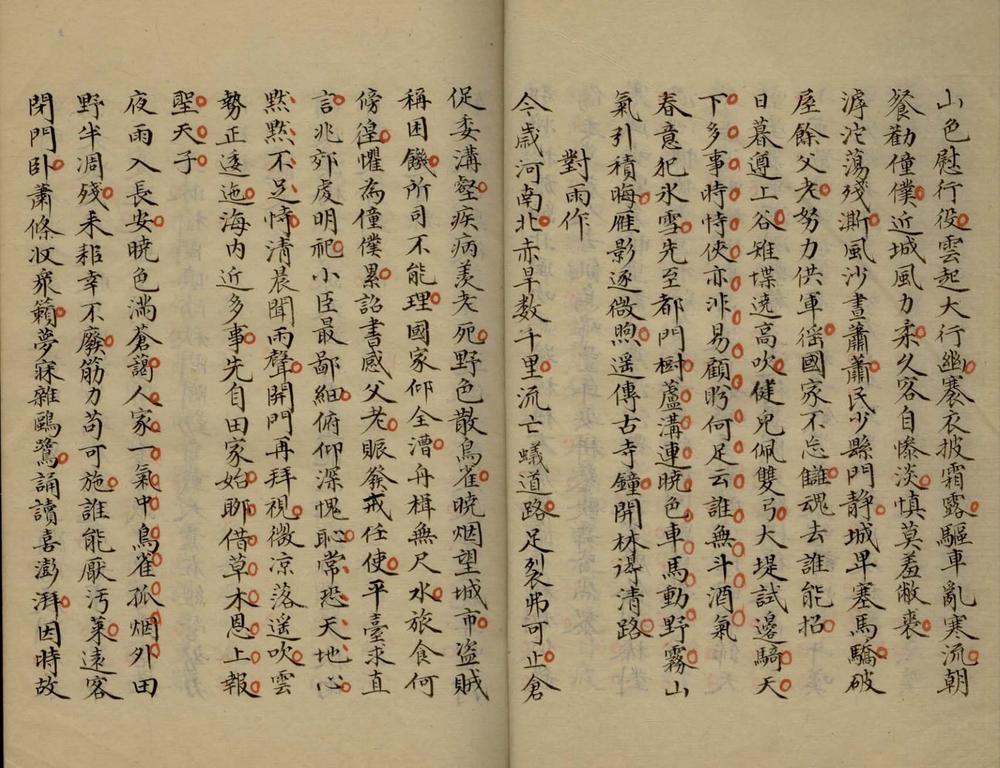 山色慰行役雲起大行幽褰衣披霜露驅車亂寒流朝
餐勸僮僕近城風力柔久客自慘淡慎莫羞敝裘
滹沱蕩殘澌風沙晝蕭蕭民少縣門静城卑塞馬驕破
屋餘父老努力供軍徭國家不忘讎魂去誰能招
日暮遵上谷雉堞遶高吹健兒佩雙弓大堤試邊騎天
下多事時恃俠亦非易顧盻何足云誰無斗酒氣
春意犯氷雪先至都門樹蘆溝連曉色車馬動野霧山
氣引積晦雁影逐微煦遥傳古寺鐘開林得清路
對雨作
今歲河南北赤旱数千里流亡蟻道路足裂弗可止倉
促委溝壑疾病羡老死野色散鳥雀曉烟望城市盗賊
稱困饑所司不能理國家仰全漕舟楫無尺水旅食何
傍徨懼為僮僕累詔書感父老賑發戒任使平臺求直
言兆郊虔明祀小臣最鄙細俯仰深愧恥常恐天地心
黙黙不足恃清晨聞雨聲開門再拜視微凉落遥吹雲
勢正逶迤海内近多事先自田家始聊借草木恩上報
聖天子
夜雨入長安曉色滿蒼藹人家一氣中鳥雀孤烟外田
野半凋殘耒耜幸不廢筋力苟可施誰能厭污萊遠客
閉門卧蕭條收衆籟夢寐雜鷗鷺誦讀喜澎湃因時故